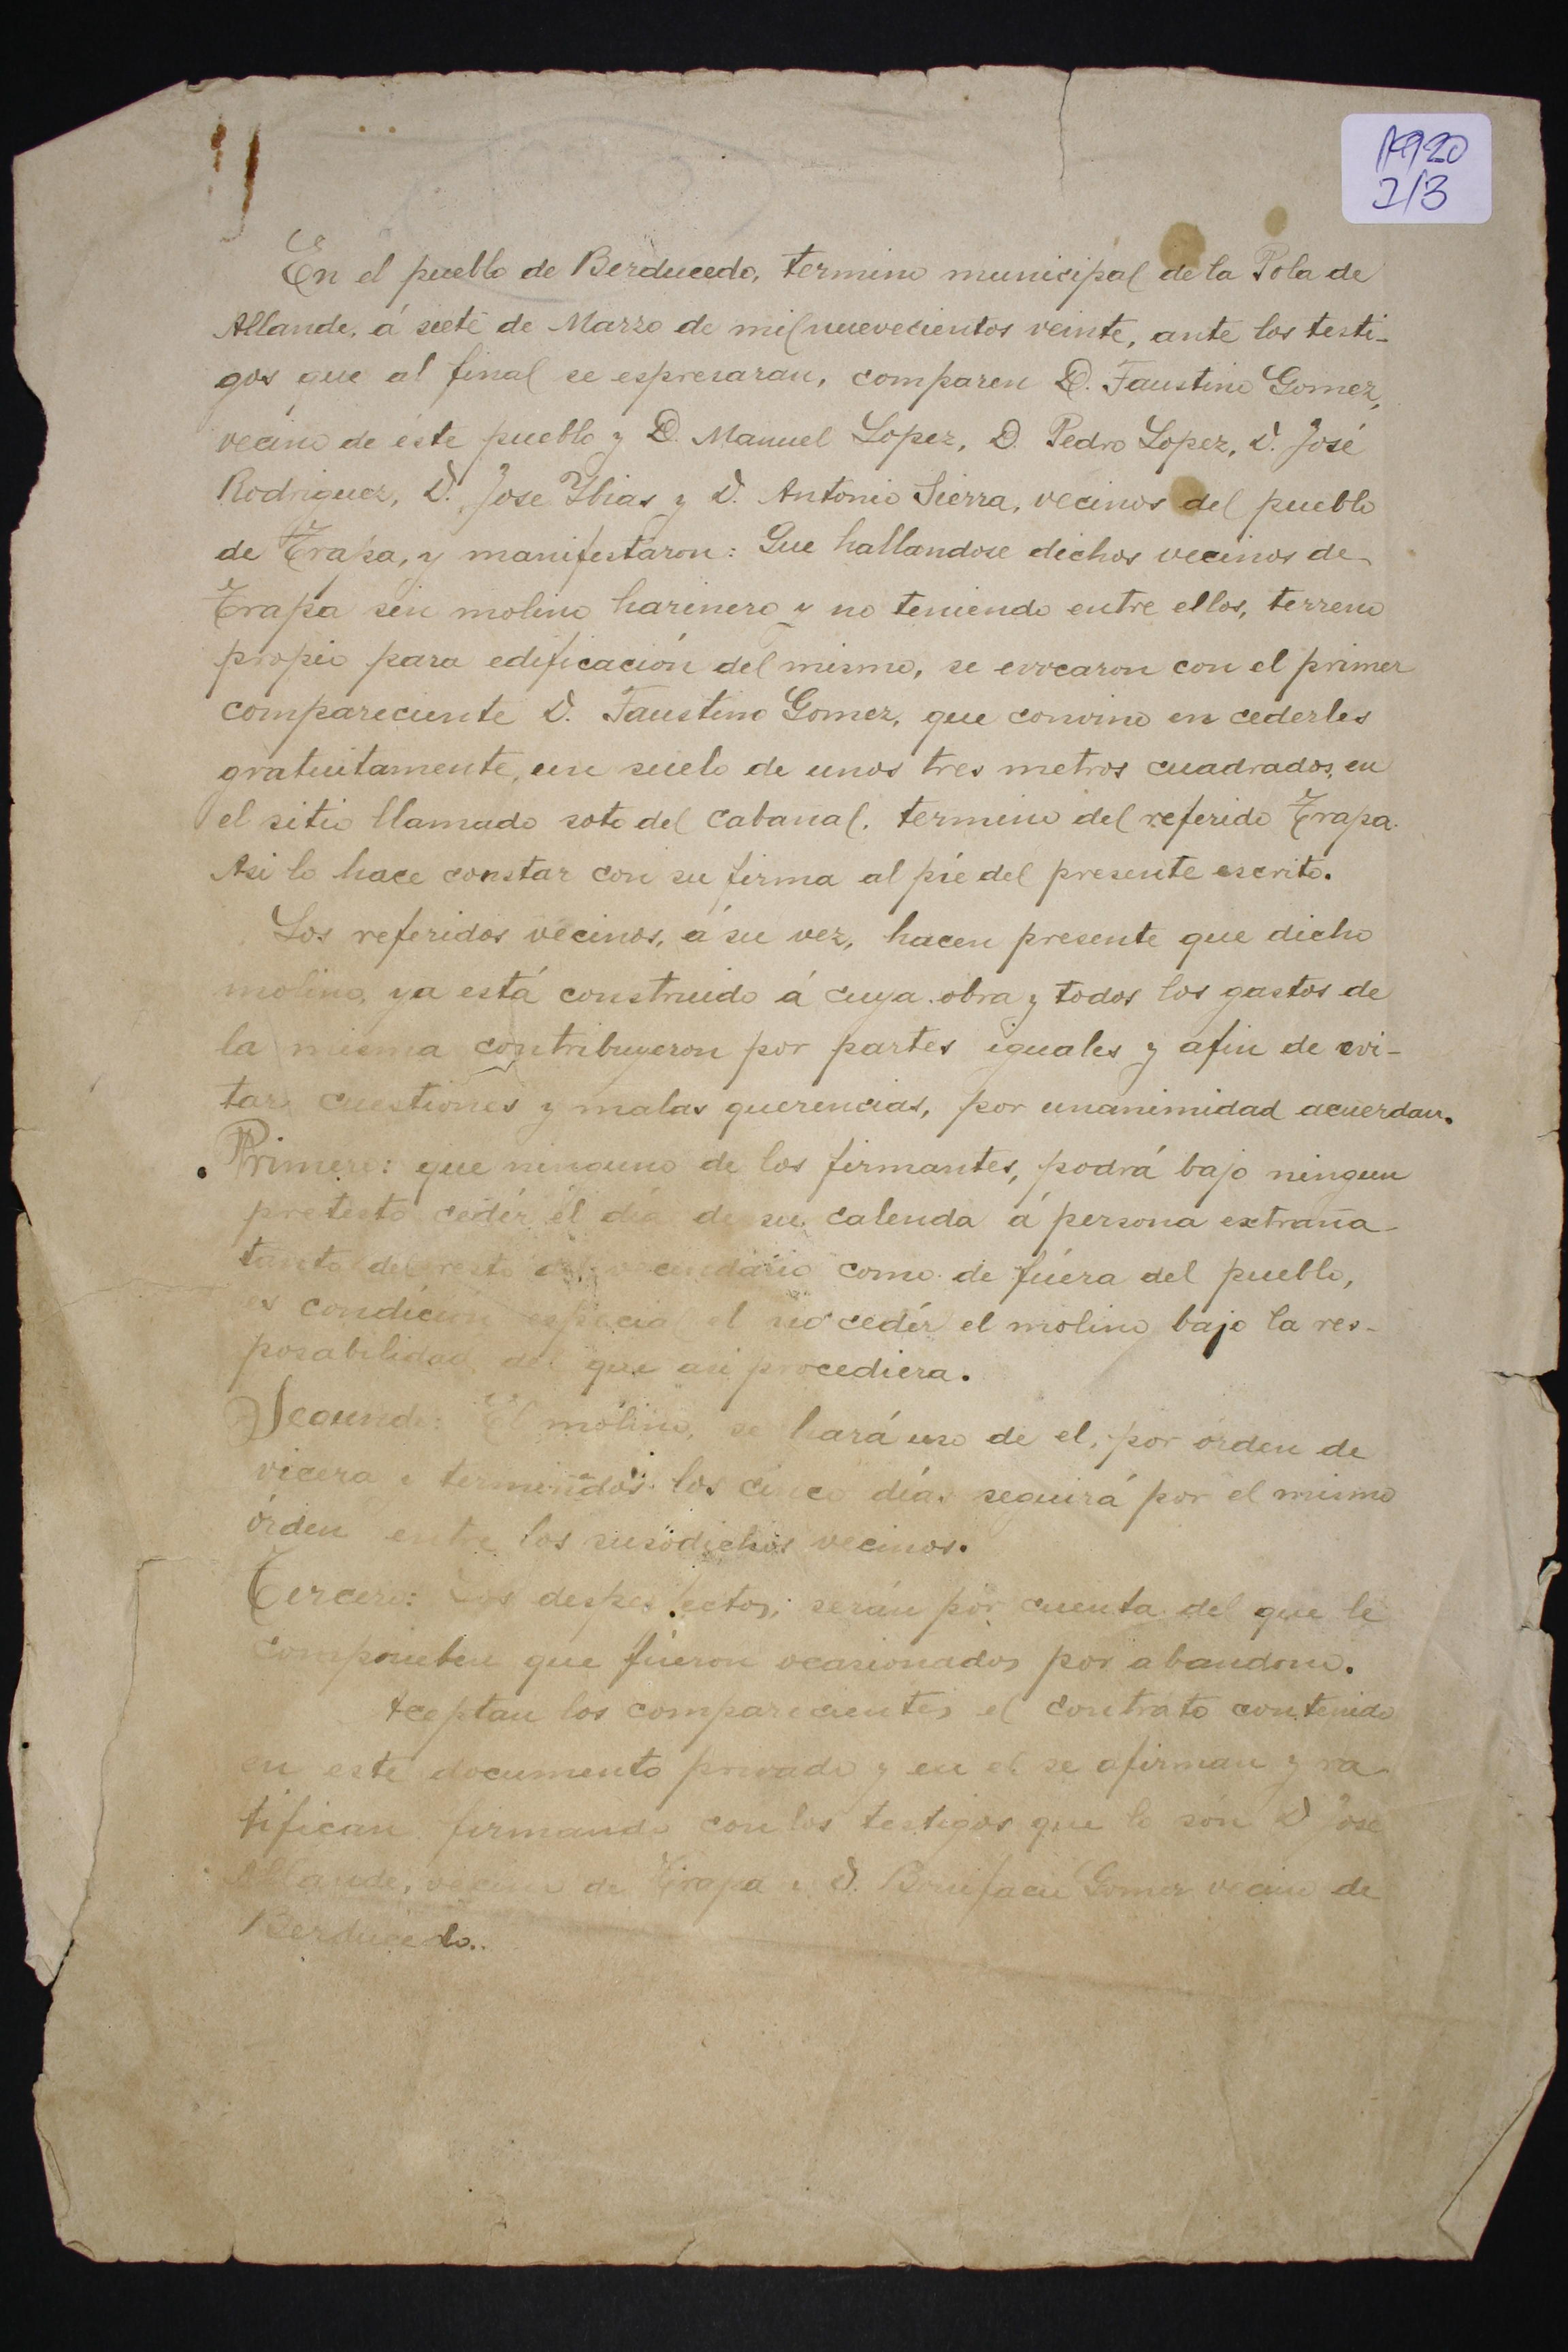 1920
2/3
En el pueblo de Berducedo, termino municipal de la Pola de
Allande, á siete de Marzo de mil nuevecientos veinte, ante los testi-
gos que al final se espresaran, comparen D. Faustino Gomez,
vecino de éste pueblo y D. Manuel Lopez, D. Pedro Lopez, D. José
Rodriguez, D. Jose Ybias y D. Antonio Sierra, vecinos del pueblo
de Trapa, y manifestaron: Que hallandose dichos vecinos de
Trapa sin molino harinero y no teniendo entre ellos, terreno
propio para edificación del mismo, se evocaron con el primer
compareciente D. Faustino Gomez, que convino en cederles
gratuitamente, un suelo de unos tres metros cuadrados, en
el sitio llamado soto del Cabanal, termino del referido Trapa.
Asi lo hace constar con su firma al pié del presente escrito.
Los referidos vecinos, á su vez, hacen presente que dicho
molino, ya está construido á cuya obra y todos los gastos de
la misma contribuyeron por partes iguales y afin de evi-
tar cuestiones y malas querencias, por unanimidad acuerdan.
Primero: que ninguno de los firmantes, podrá bajo ningun
pretesto cedér él día de su calenda á persona extraña
tanto del resto del vecindario como de fúera del pueblo,
es condición especial el no cedér el molino bajo la res-
posabilidad del que asi procediera.
Segundo: El molino, se hará uso de el, por órden de
vicera e terminados los cinco días seguirá por el mismo
órden entre los susodichos vecinos.
Tercero: Los desperfectos, serán por cuenta del que le
comprueben que fúeron ocasionados por abandono.
Aceptan los comparecientes el contrato contenido
en este documento privado y en el se afirman y ra-
tifican firmando con los testigos que lo són D Jose
Allande, vecino de Trapa y D. Bonifacio Gomez vecino de
Berducedo..